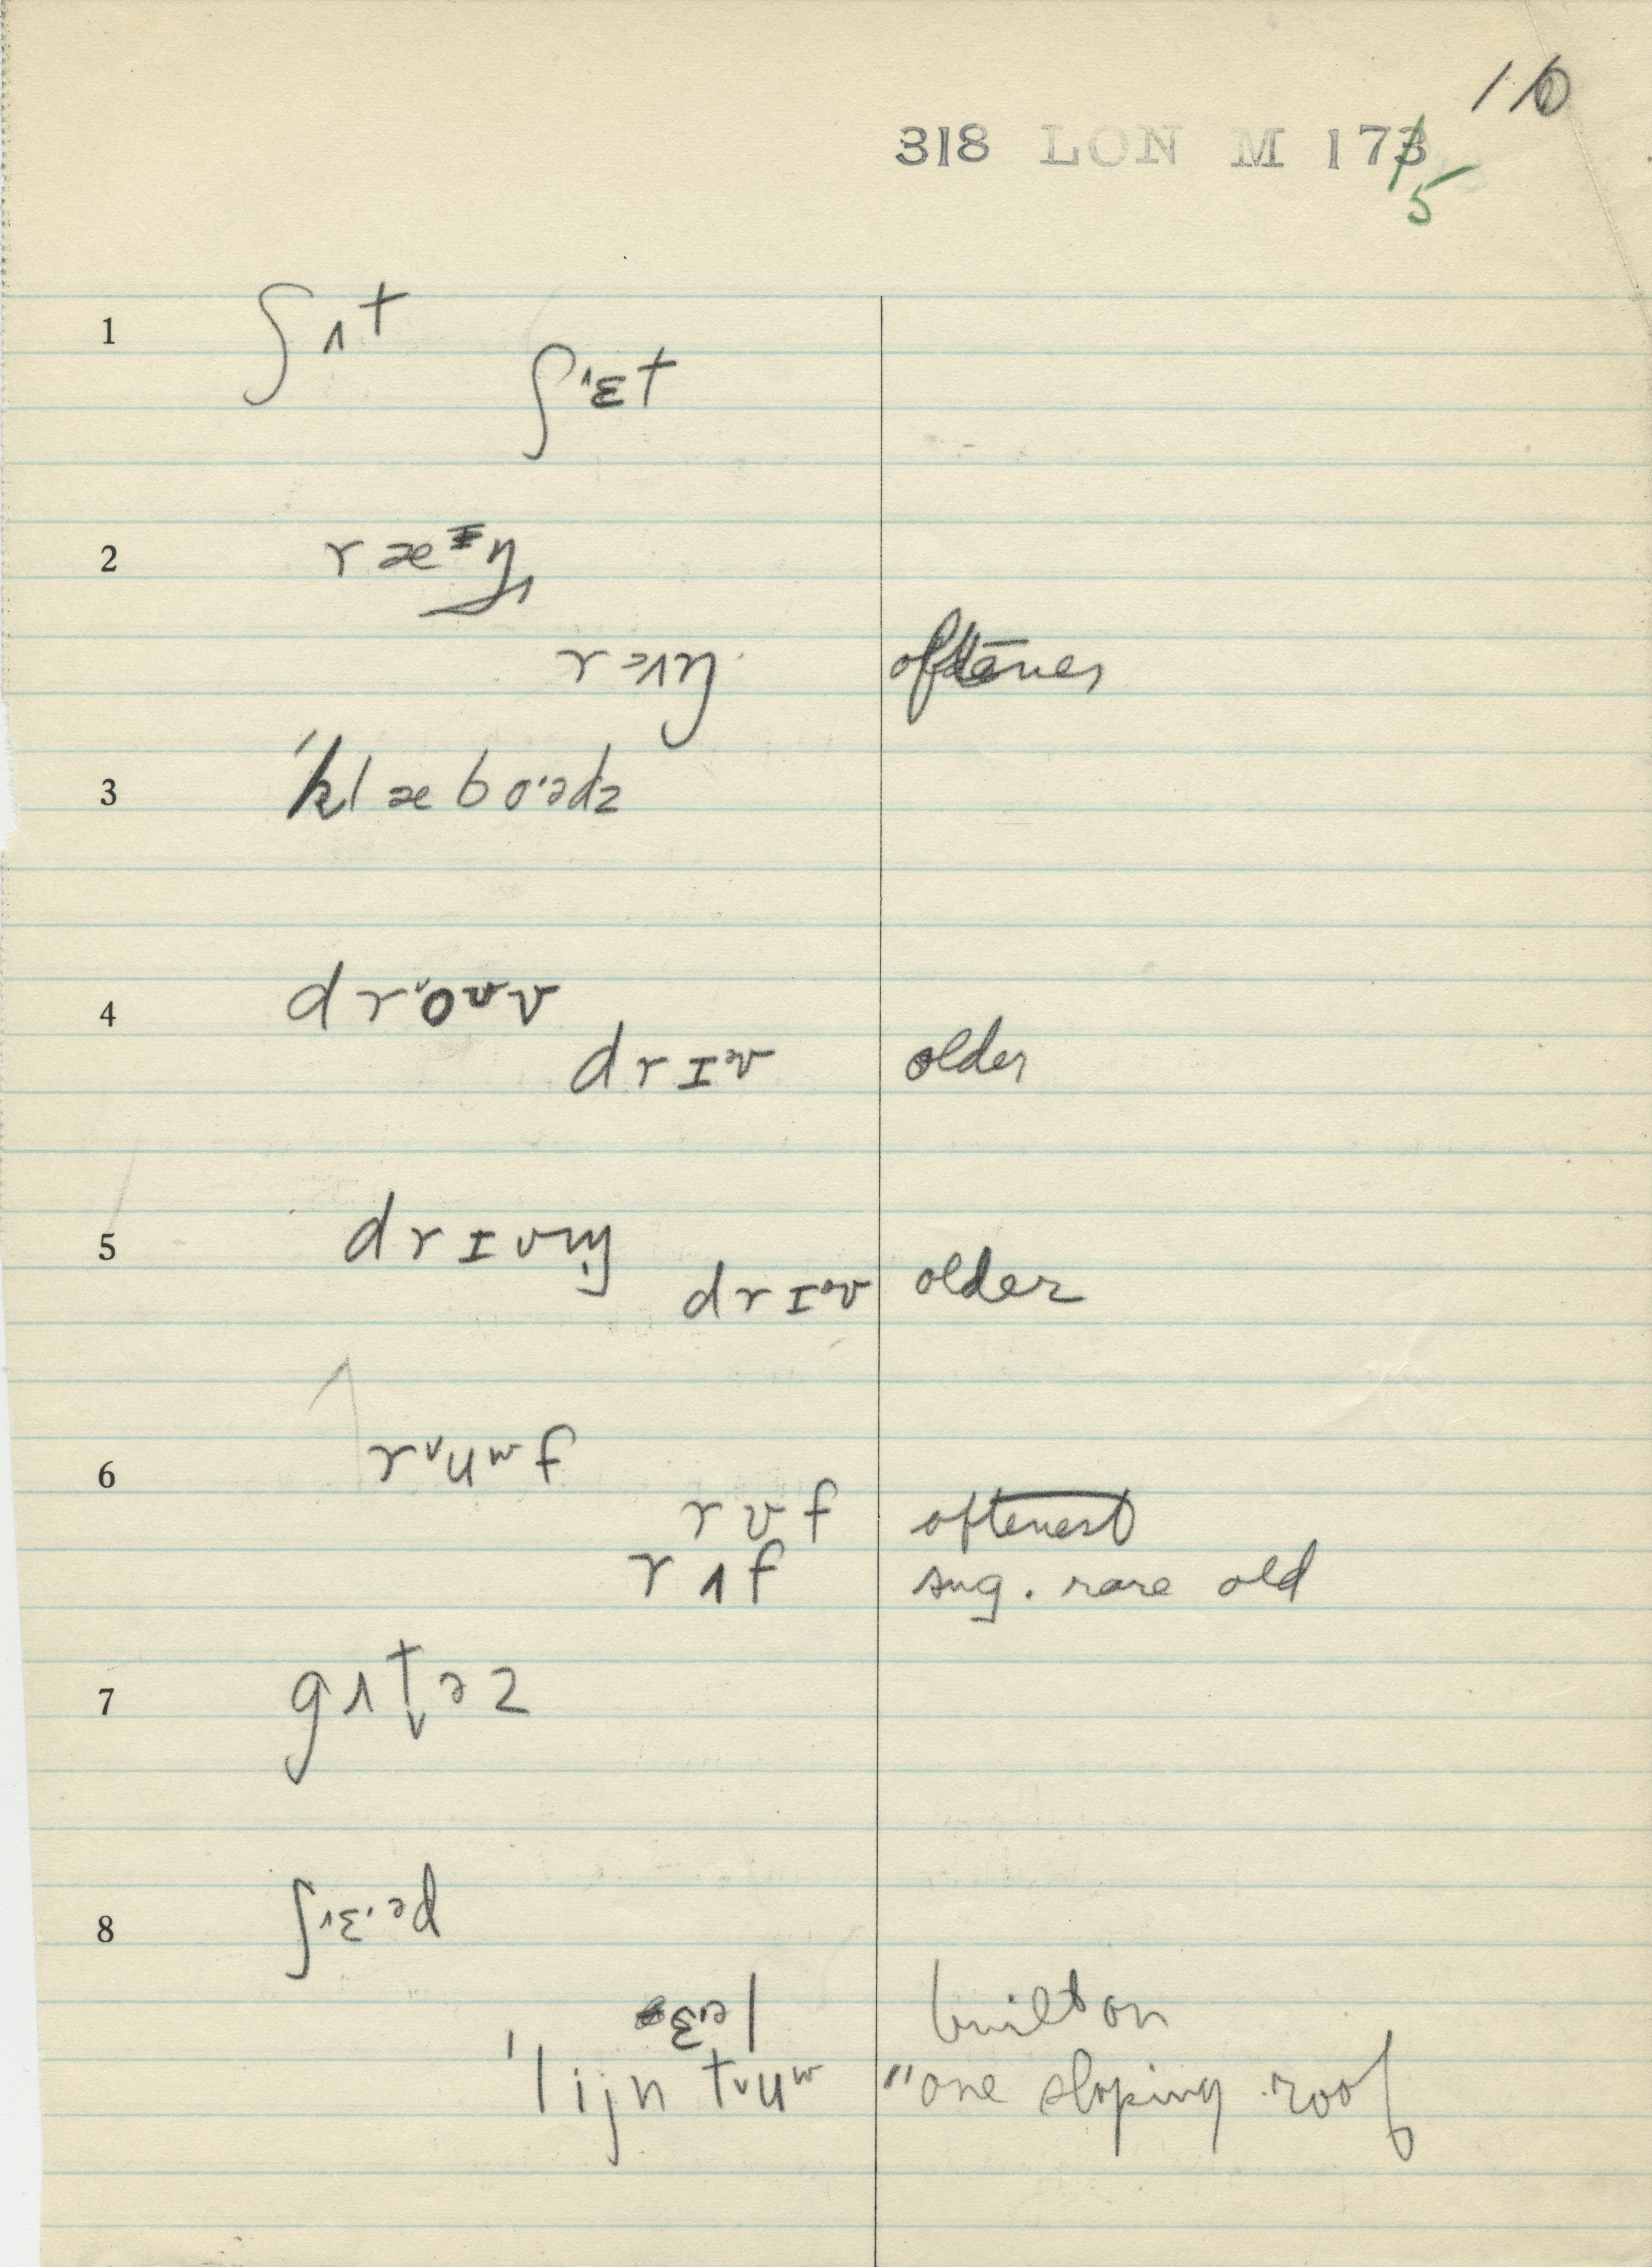 110
318 LON M 173
5
1 ʃɪt
ʃ'ɛt
2
oftener
3 'klæboˑədz
4
drɪəv older
5 drɪvɪŋ
drɪəv older
6 rᵛuʷf
rʊf oftenest
rʌf sug. rare old
7 gʌtəz
8 ʃɛˑəd
ɛˑə| built on
'lijn tᵛuʷ "one sloping roof